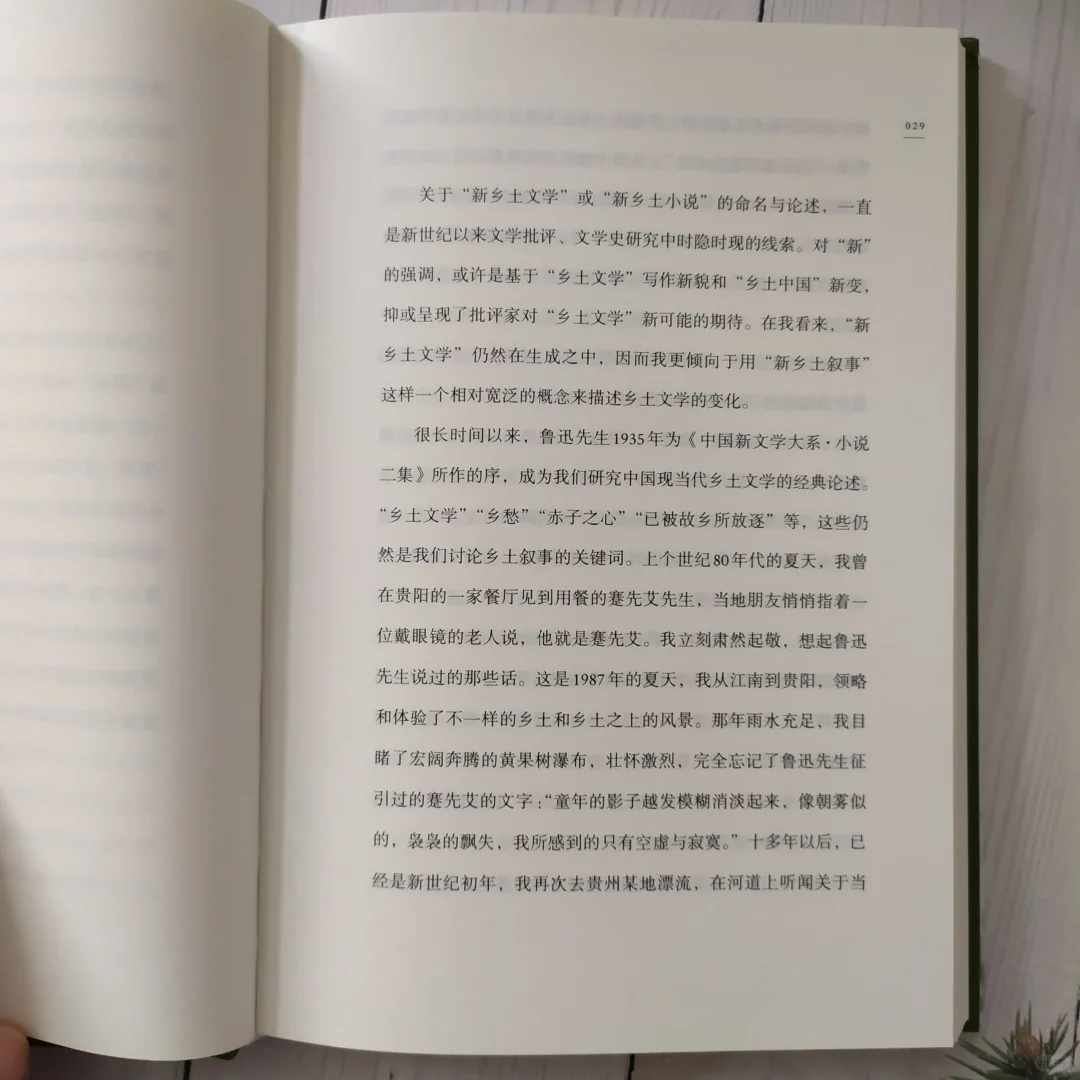 029
关于“新乡土文学”或“新乡土小说”的命名与论述，一直
是新世纪以来文学批评、文学史研究中时隐时现的线索。对“新”
的强调，或许是基于“乡土文学”写作新貌和“乡土中国”新变，
抑或呈现了批评家对“乡土文学”新可能的期待。在我看来，“新
乡土文学”仍然在生成之中，因而我更倾向于用“新乡土叙事”
这样一个相对宽泛的概念来描述乡土文学的变化。
很长时间以来，鲁迅先生1935年为《中国新文学大系·小说
二集》所作的序，成为我们研究中国现当代乡土文学的经典论述。
“乡土文学”“乡愁”“赤子之心”“已被故乡所放逐”等，这些仍
然是我们讨论乡土叙事的关键词。上个世纪80年代的夏天，我曾
在贵阳的一家餐厅见到用餐的蹇先艾先生，当地朋友悄悄指着一
位戴眼镜的老人说，他就是蹇先艾。我立刻肃然起敬，想起鲁迅
先生说过的那些话。这是1987年的夏天，我从江南到贵阳，领略
和体验了不一样的乡土和乡土之上的风景。那年雨水充足，我目
睹了宏阔奔腾的黄果树瀑布，壮怀激烈，完全忘记了鲁迅先生征
引过的蹇先艾的文字：“童年的影子越发模糊消淡起来，像朝雾似
的，袅袅的飘失，我所感到的只有空虚与寂寞。”十多年以后，已
经是新世纪初年，我再次去贵州某地漂流，在河道上听闻关于当